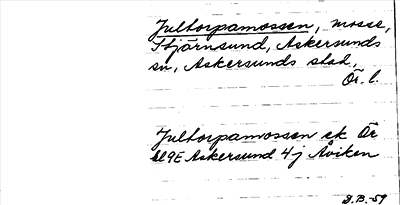 Jultorpamossen, mosse,
Stjärnsund, Askersunds
sn, Askersunds stad,
Ör. l.
Jultorpamossen ek Ör
bl 9E Askersund 4j Åviken
D.B.-59